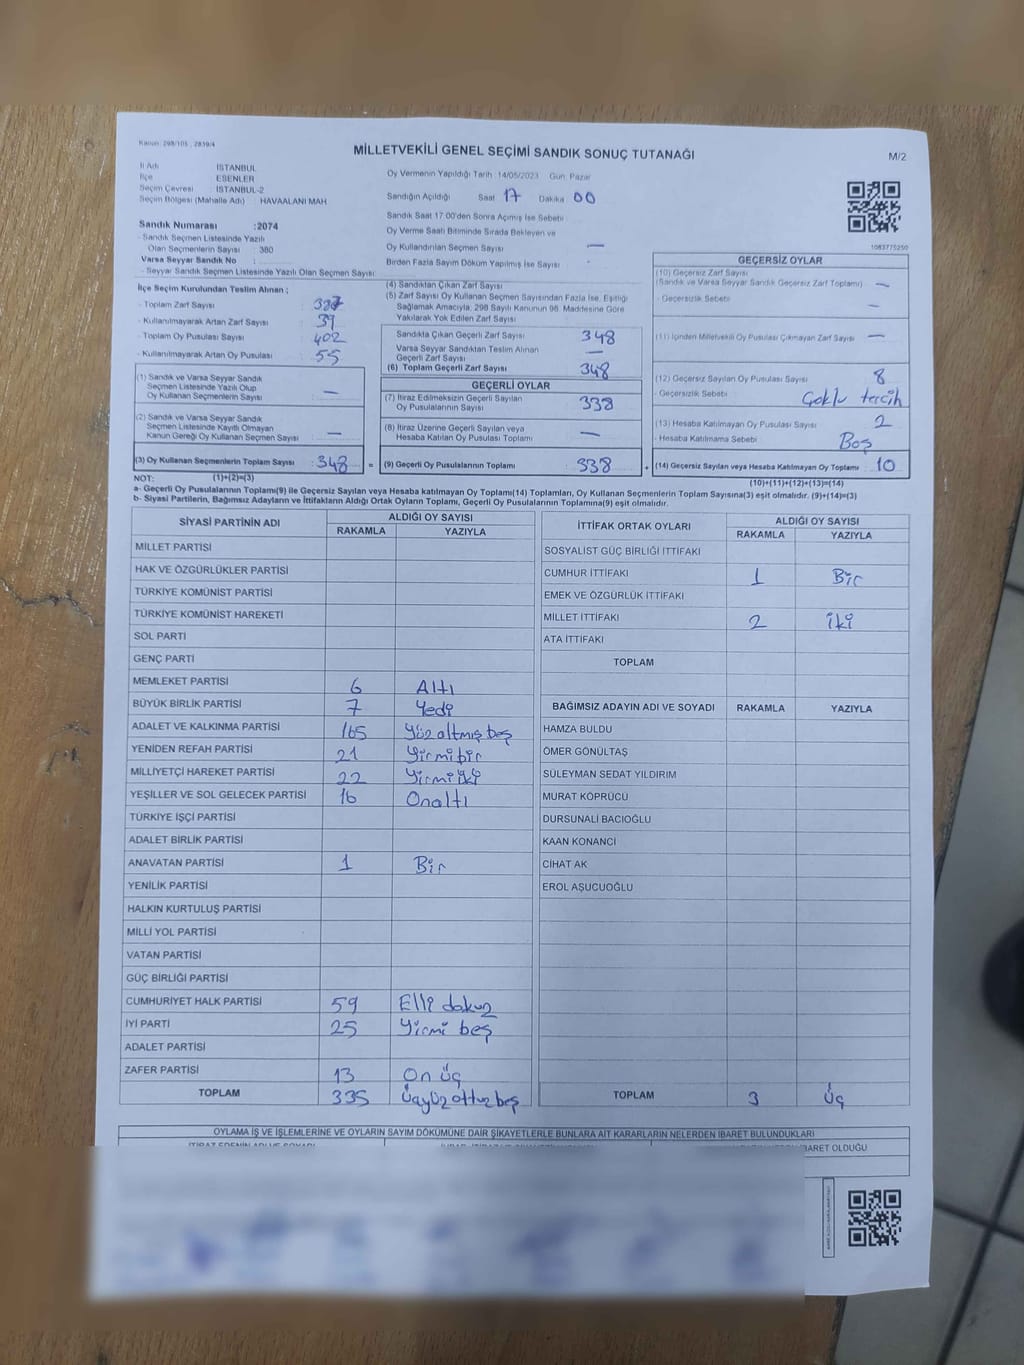 Kanun: 298/105 , 2839/4
MİLLETVEKİLİ GENEL SEÇİMİ SANDIK SONUÇ TUTANAĞI
M/2
İl Adı : İSTANBUL
İlçe : ESENLER
Seçim Çevresi : İSTANBUL-2
Seçim Bölgesi (Mahalle Adı) : HAVAALANI MAH.
Sandık Numarası :2074
- Sandık Seçmen Listesinde Yazılı
Olan Seçmenlerin Sayısı : 380
Varsa Seyyar Sandık No :
- Seyyar Sandık Seçmen Listesinde Yazılı Olan Seçmen Sayısı:
Oy Vermenin Yapıldığı Tarih :14/05/2023 Gün: Pazar
Sandığın Açıldığı Saat 17 Dakika 00
Sandık Saat 17:00'den Sonra Açılmış İse Sebebi
Oy Verme Saati Bitiminde Sırada Bekleyen ve
Oy Kullandırılan Seçmen Sayısı —
Birden Fazla Sayım Döküm Yapılmış İse Sayısı
1083775250
İlçe Seçim Kurulundan Teslim Alınan ;
- Toplam Zarf Sayısı 387
- Kullanılmayarak Artan Zarf Sayısı 39
- Toplam Oy Pusulası Sayısı 402
- Kullanılmayarak Artan Oy Pusulası 55
(1) Sandık ve Varsa Seyyar Sandık
Seçmen Listesinde Yazılı Olup
Oy Kullanan Seçmenlerin Sayısı —
(2) Sandık ve Varsa Seyyar Sandık
Seçmen Listesinde Kayıtlı Olmayan
Kanun Gereği Oy Kullanan Seçmen Sayısı —
(3) Oy Kullanan Seçmenlerin Toplam Sayısı : 348
(4) Sandıktan Çıkan Zarf Sayısı
(5) Zarf Sayısı Oy Kullanan Seçmen Sayısından Fazla İse, Eşitliği
Sağlamak Amacıyla, 298 Sayılı Kanunun 98. Maddesine Göre
Yakılarak Yok Edilen Zarf Sayısı
Sandıkta Çıkan Geçerli Zarf Sayısı 348
Varsa Seyyar Sandıktan Teslim Alınan
Geçerli Zarf Sayısı —
(6) Toplam Geçerli Zarf Sayısı 348
GEÇERLİ OYLAR
(7) İtiraz Edilmeksizin Geçerli Sayılan
Oy Pusulalarının Sayısı 338
(8) İtiraz Üzerine Geçerli Sayılan veya
Hesaba Katılan Oy Pusulası Toplamı —
= (9) Geçerli Oy Pusulalarının Toplamı 338
GEÇERSİZ OYLAR
(10) Geçersiz Zarf Sayısı
(Sandık ve Varsa Seyyar Sandık Geçersiz Zarf Toplamı) —
- Geçersizlik Sebebi —
(11) İçinden Milletvekili Oy Pusulası Çıkmayan Zarf Sayısı —
(12) Geçersiz Sayılan Oy Pusulası Sayısı 8
- Geçersizlik Sebebi Çoklu tercih
(13) Hesaba Katılmayan Oy Pusulası Sayısı 2
- Hesaba Katılmama Sebebi Boş
+ (14) Geçersiz Sayılan veya Hesaba Katılmayan Oy Toplamı 10
NOT: (1)+(2)=(3)
(10)+(11)+(12)+(13)=(14)
a- Geçerli Oy Pusulalarının Toplamı(9) ile Geçersiz Sayılan veya Hesaba katılmayan Oy Toplamı(14) Toplamları, Oy Kullanan Seçmenlerin Toplam Sayısına(3) eşit olmalıdır. (9)+(14)=(3)
b- Siyasi Partilerin, Bağımsız Adayların ve İttifakların Aldığı Ortak Oyların Toplamı, Geçerli Oy Pusulalarının Toplamına(9) eşit olmalıdır.
SİYASİ PARTİNİN ADI ALDIĞI OY SAYISI
RAKAMLA YAZIYLA
MİLLET PARTİSİ
HAK VE ÖZGÜRLÜKLER PARTİSİ
TÜRKİYE KOMÜNİST PARTİSİ
TÜRKİYE KOMÜNİST HAREKETİ
SOL PARTİ
GENÇ PARTİ
MEMLEKET PARTİSİ 6 Altı
BÜYÜK BİRLİK PARTİSİ 7 Yedi
ADALET VE KALKINMA PARTİSİ 165 Yüz altmış beş
YENİDEN REFAH PARTİSİ 21 Yirmi bir
MİLLİYETÇİ HAREKET PARTİSİ 22 Yirmi iki
YEŞİLLER VE SOL GELECEK PARTİSİ 16 Onaltı
TÜRKİYE İŞÇİ PARTİSİ
ADALET BİRLİK PARTİSİ
ANAVATAN PARTİSİ 1 Bir
YENİLİK PARTİSİ
HALKIN KURTULUŞ PARTİSİ
MİLLİ YOL PARTİSİ
VATAN PARTİSİ
GÜÇ BİRLİĞİ PARTİSİ
CUMHURİYET HALK PARTİSİ 59 Elli dokuz
İYİ PARTİ 25 Yirmi beş
ADALET PARTİSİ
ZAFER PARTİSİ 13 On üç
TOPLAM 335 Üçyüz ottuz beş
İTTİFAK ORTAK OYLARI ALDIĞI OY SAYISI
RAKAMLA YAZIYLA
SOSYALİST GÜÇ BİRLİĞİ İTTİFAKI
CUMHUR İTTİFAKI 1 Bir
EMEK VE ÖZGÜRLÜK İTTİFAKI
MİLLET İTTİFAKI 2 iki
ATA İTTİFAKI
TOPLAM
BAĞIMSIZ ADAYIN ADI VE SOYADI RAKAMLA YAZIYLA
HAMZA BULDU
ÖMER GÖNÜLTAŞ
SÜLEYMAN SEDAT YILDIRIM
MURAT KÖPRÜCÜ
DURSUNALİ BACIOĞLU
KAAN KONANCİ
CİHAT AK
EROL AŞUCUOĞLU
TOPLAM 3 Üç
OYLAMA İŞ VE İŞLEMLERİNE VE OYLARIN SAYIM DÖKÜMÜNE DAİR ŞİKAYETLERLE BUNLARA AİT KARARLARIN NELERDEN İBARET BULUNDUKLARI
BARET OLDUĞU